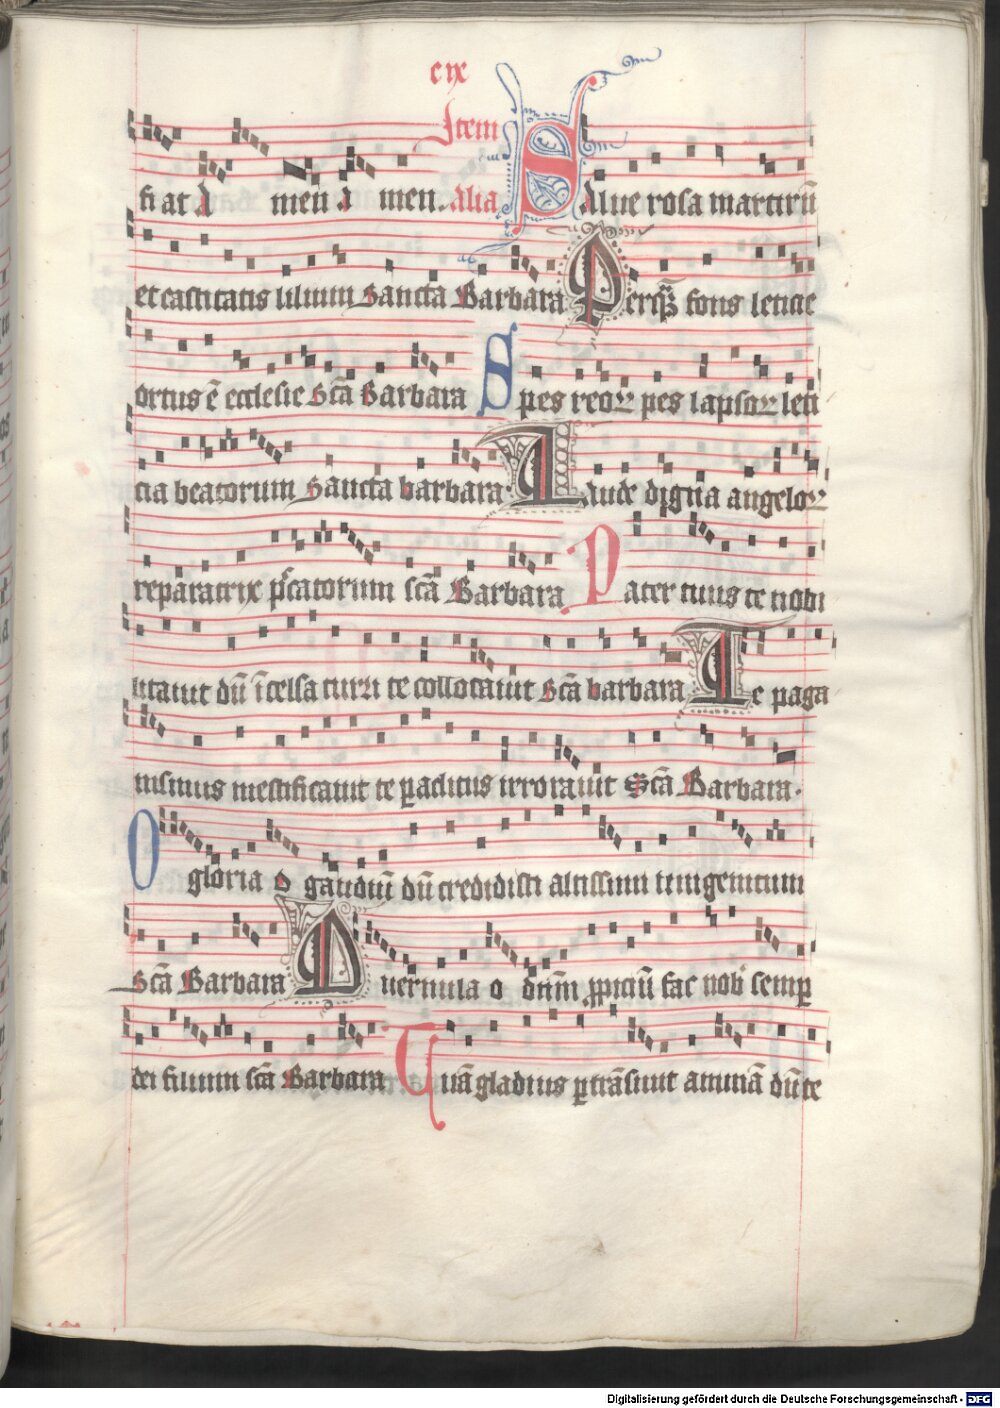 cix
Item
fiat A men A men. alia Salue rosa martirū
et castitatis lilium Sancta Barbara Per quā fons leticie
ortus ē ecclesie Scā Barbara Spes reoꝝ pes lapsoꝝ leti
cia beatorum Sancta barbara Laude digna angeloꝝ
reparatrix pccatorum scā Barbara Pater tuus te nobi
litauit dū i celsa turri te collocauit Scā barbara Te paga
nismus mestificauit te paclitus irrorauit Scā Barbara.
O gloria o gaudiū dū credidisti altissimi unigenitum
Scā Barbara Uernula o dnm ppiciū fac nob semp
dei filium scā Barbara Quā gladius ptrāsiuit animā dū te
Digitalisierung gefördert durch die Deutsche Forschungsgemeinschaft - DFG